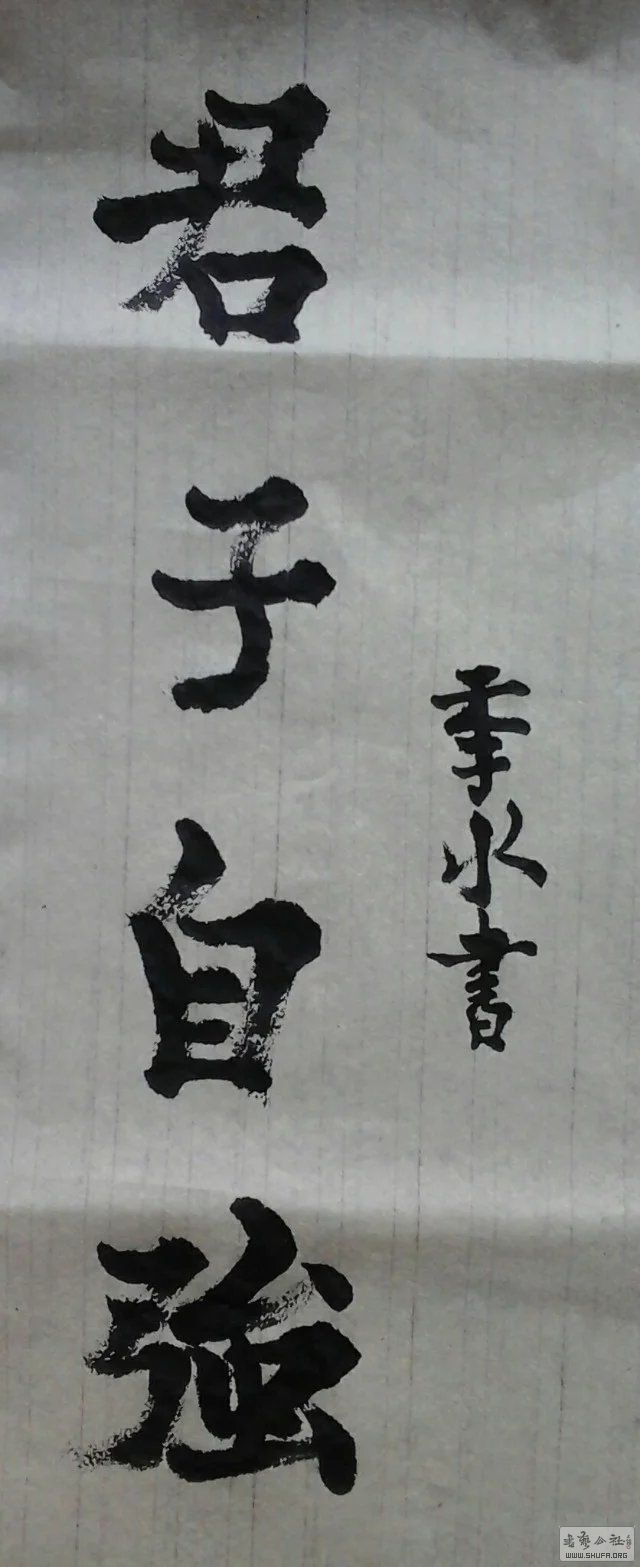 君子自強
水書
书艺公社
WWW.SHUFA.ORG